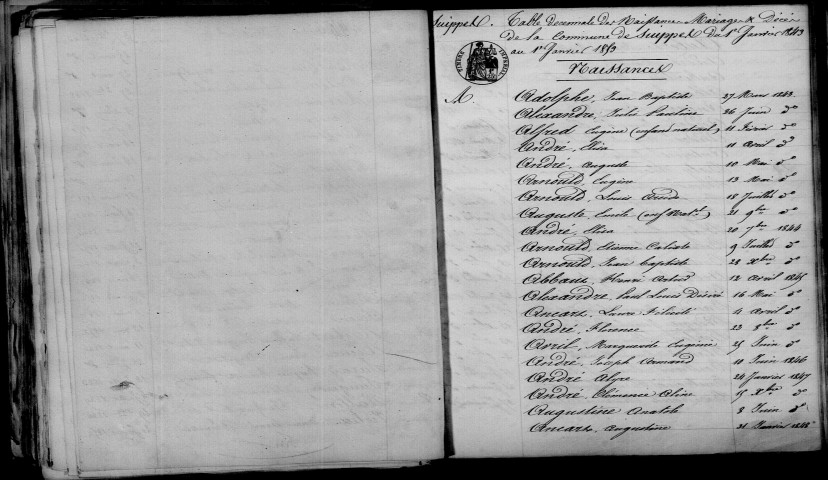 Suippes. Table décennale des Naissances Mariages & Décès
de la Commune de Suippes du 1er Janvier 1843
au 1er Janvier 1853
TIMBRE IMPERIAL
Naissances
A. Adolphe, Jean Baptiste 27 Mars 1843
Alexandre, Jules Pauline 26 Juin do
Alfred Eugène (enfant naturel) 11 Février do
André, Elisa 11 Avril do
André, Auguste 10 Mai do
Arnould, Eugène 13 Mai do
Arnould, Louis 18 Juillet do
Auguste Emile (enf Nat.l) 21 9bre do
André, Elisa 20 7bre 1844
Arnould, Etienne Calixte 9 Juillet do
Arnould, Jean baptiste 28 Xbre do
Abbaus Henri 12 Avril 1845
Alexandre, Paul Louis Désiré 16 Mai do
Ancart, Laure Félicité 4 Avril do
André, Florence 23 8bre do
Avril, Marguerite Eugénie 25 Juin do
André, Joseph Armand 10 Juin 1846
André Alyre 24 Janvier 1847
André, Clémence Aline 15 Xbre do
Augustine Anatole 8 Juin do
Ancart, Augustine 31 Janvier 1848